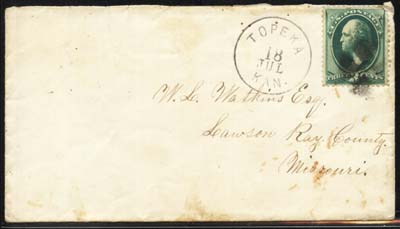 U.S. POSTAGE
THREE CENTS
TOPEKA
18
JUL
KAN.
W. L. Watkins Esq.
Lawson Ray County
Missouri.